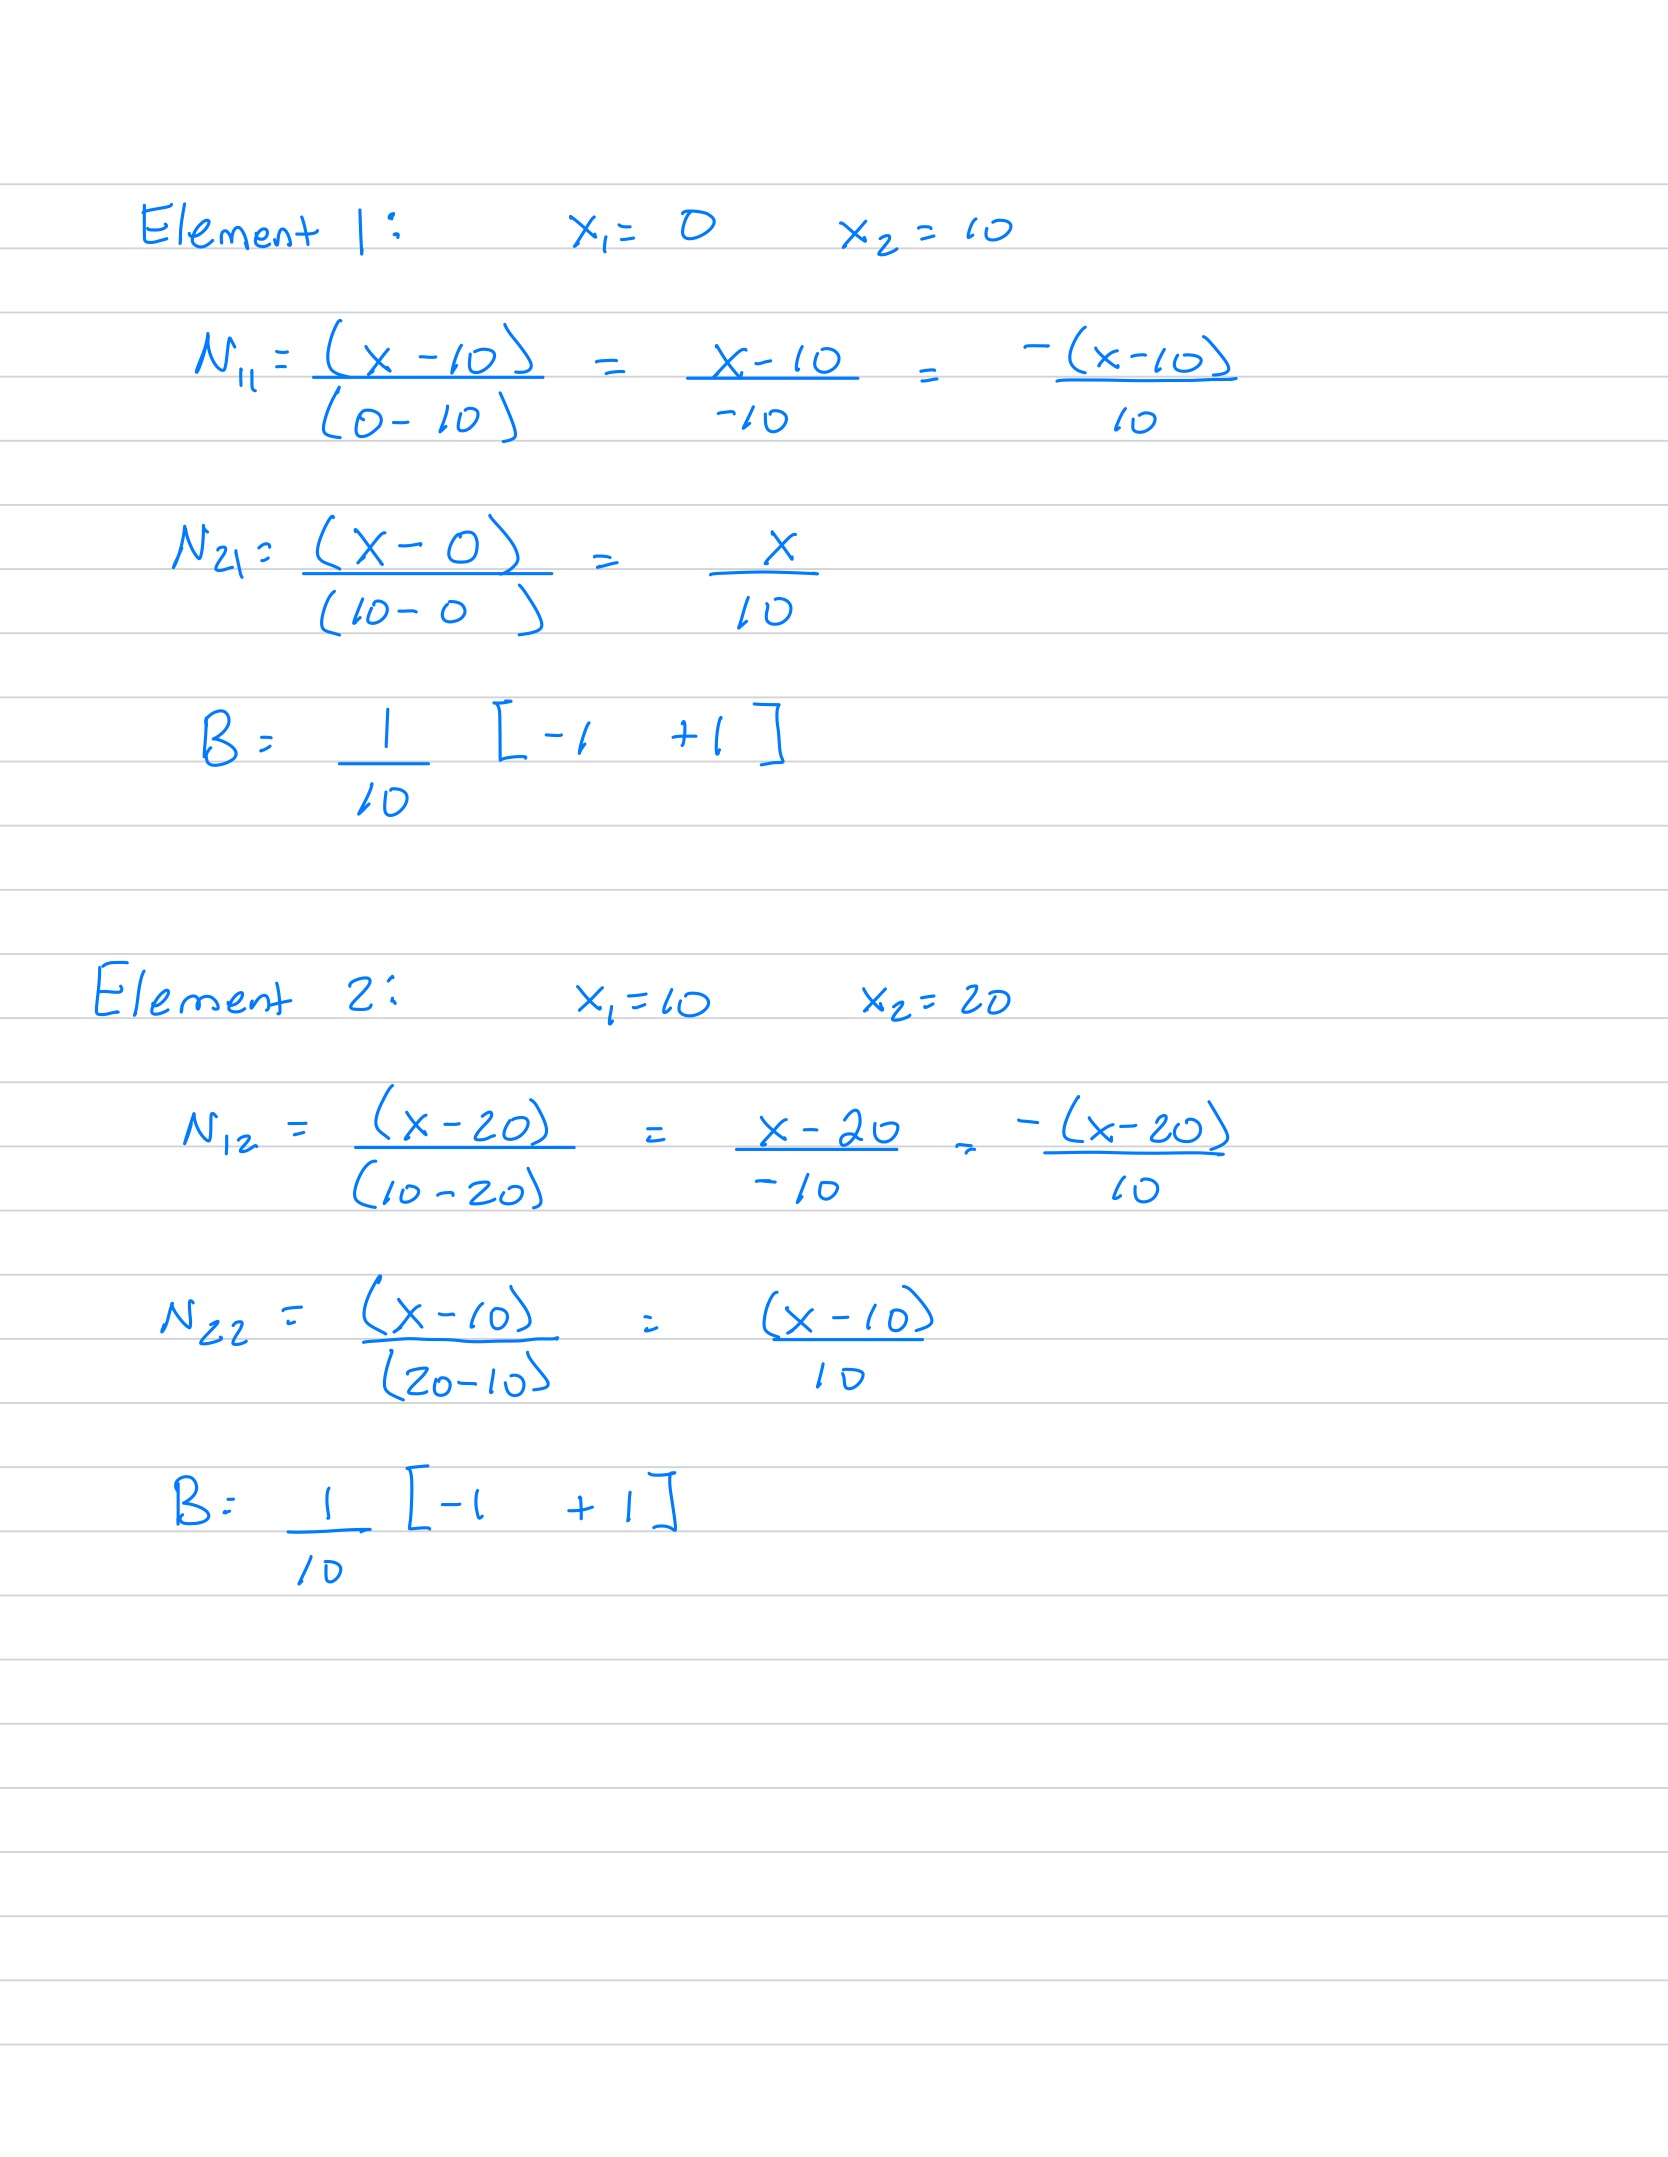 Element 1: x₁= 0 x₂ = 10
N₁₁ = (x-10)/(0-10) = x-10/-10 = -(x-10)/10
N₂₁ = (x-0)/(10-0) = x/10
B = 1/10 [-1 +1]
Element 2: x₁=10 x₂=20
N₁₂ = (x-20)/(10-20) = x-20/-10 = -(x-20)/10
N₂₂ = (x-10)/(20-10) = (x-10)/10
B = 1/10 [-1 +1]